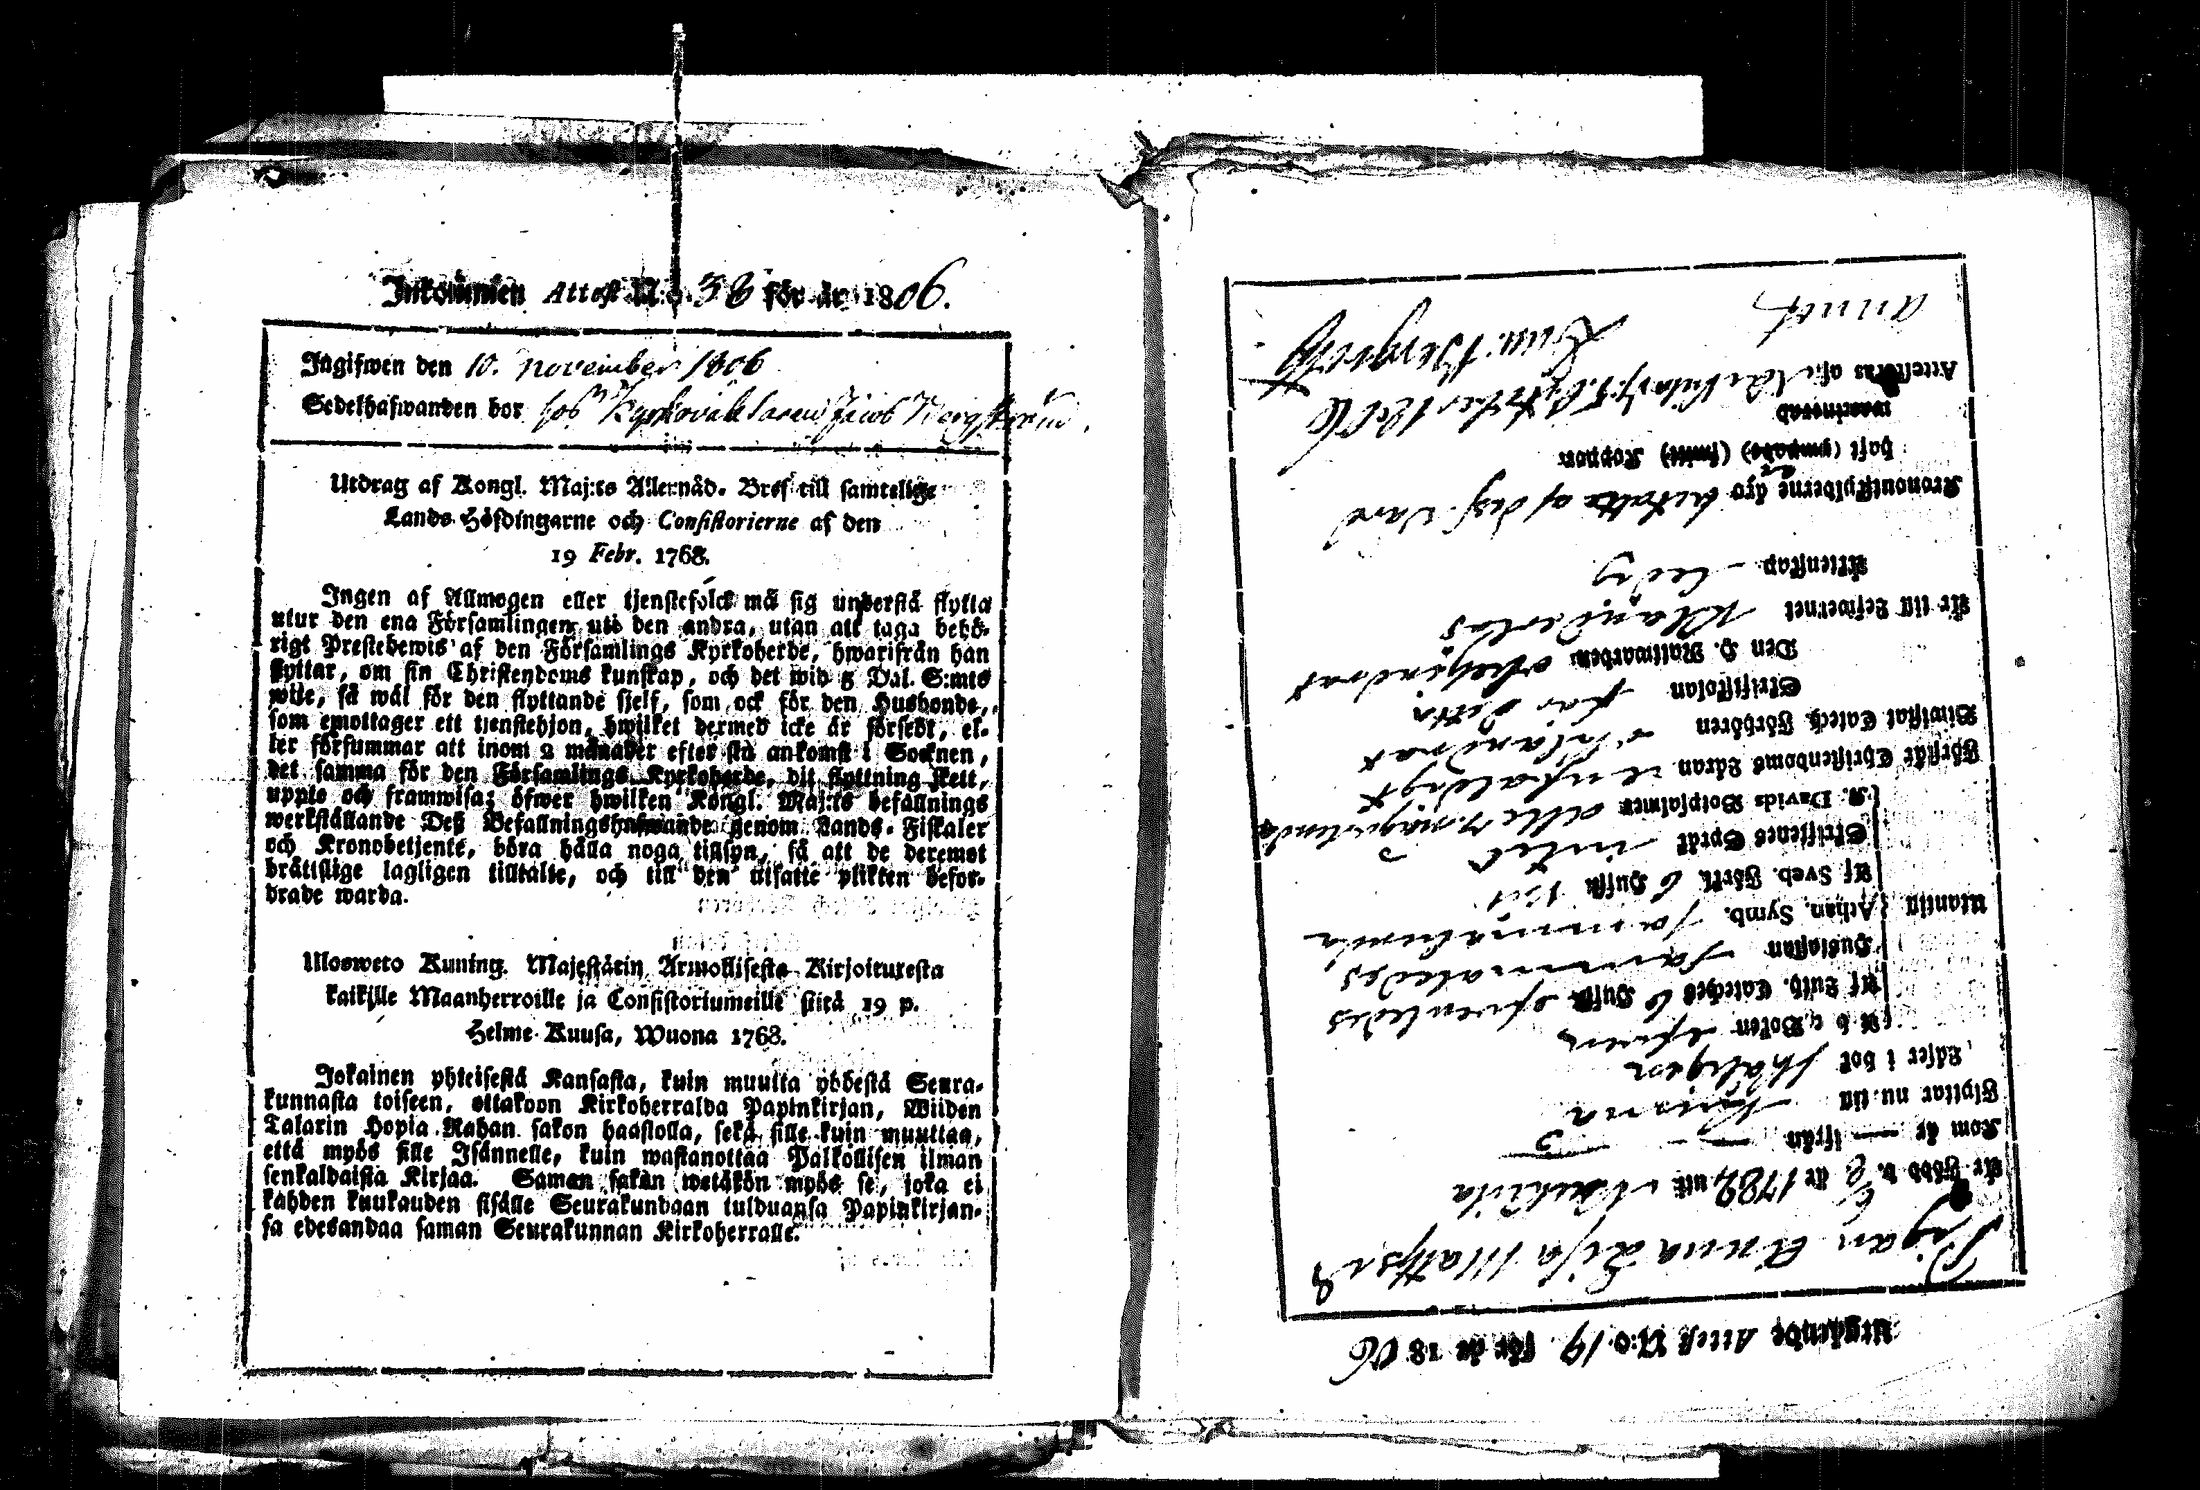 Inkommen Attest N:o 38 för år 1806.
Ingifwen den 10. november 1806
Sedelhafwanden bor hos Kyrkoväktaren Jacob Bergström.
Utdrag af Kongl. Maj:ts Allernåd. Bref till samtelige
Lands-Höfdingarne och Consistorierne af den
19 Febr. 1768.
Ingen af Allmogen eller tjenstefolck må sig understå flytta
utur den ena Församlingen uti den andra, utan att taga behö-
rigt Prestebewis af den Församlings Kyrkoherde, hwarifrån han
flyttar, om sin Christendoms kunskap, och det wid 5 Dal. S:mts
wite, så wäl för den flyttande sjelf, som ock för den Husbonde,
som emottager ett tjenstehjon, hwilket dermed icke är försedt, el-
ler försummar att inom 2 månader efter sin ankomst i Socknen,
det samma för den Församlings Kyrkoherde, dit flyttning skett,
uppte och framwisa; öfwer hwilken Kongl. Maj:ts befallnings
werkställande Deß Befallningshafwande genom Lands-Fiskaler
och Kronobetjente, böra hålla noga tillsyn, så att de deremot
brätslige lagligen tilltalte, och till den utsatte plikten befor-
drade warda.
Ulosweto Kuning. Majestätin Armollisesta Kirjoituxesta
kaikille Maanherroille ja Consistoriumeille siitä 19 p.
Helme-Kuusa, Wuona 1768.
Jokainen yhteisestä Kansasta, kuin muutta yhdestä Seura-
kunnasta toiseen, ottakoon Kirkoherralda Papinkirjan, Wiiden
Talarin Hopia Rahan sakon haastolla, sekä sille kuin muuttaa,
että myös sille Isännelle, kuin wastanottaa Palkollisen ilman
senkaldaista Kirjaa. Saman sakan wetäkön myös se, joka ei
kahden kuukauden sisälle Seurakundaan tulduansa Papinkirjan-
sa edesandaa saman Seurakunnan Kirkoherralle.
Utgående Attest N:o 19. för år 1806
Pigan Anna Lisa Mattsdr
Är född d. 6/8 år 1789, uti Nerkila
Kom år — ifrån —
Flyttar nu till
Läser i bok skäligen
A b c, Boken äfven
Af Luth. Cateches 6 Hufst. äfvenledes
Hustaflan sammaledes
Utantill Athan. Symb. sammalunda
Af Sveb. Förkl. 6 Hufst.
Skriftenes Språk intet
K. Davids Botpsalmer
Förstår Christendoms Läran enfaldigt
Biwistat Catech. Förhören
Skriftskolan
Den H. Nattwarden obehindrat
Är till Lefwernet Klanderlös
Äktenskap ledig
Kronoutskylderne äro betalte af
Haft (ympade) (smitt) Koppor
Attesteras af
annot.